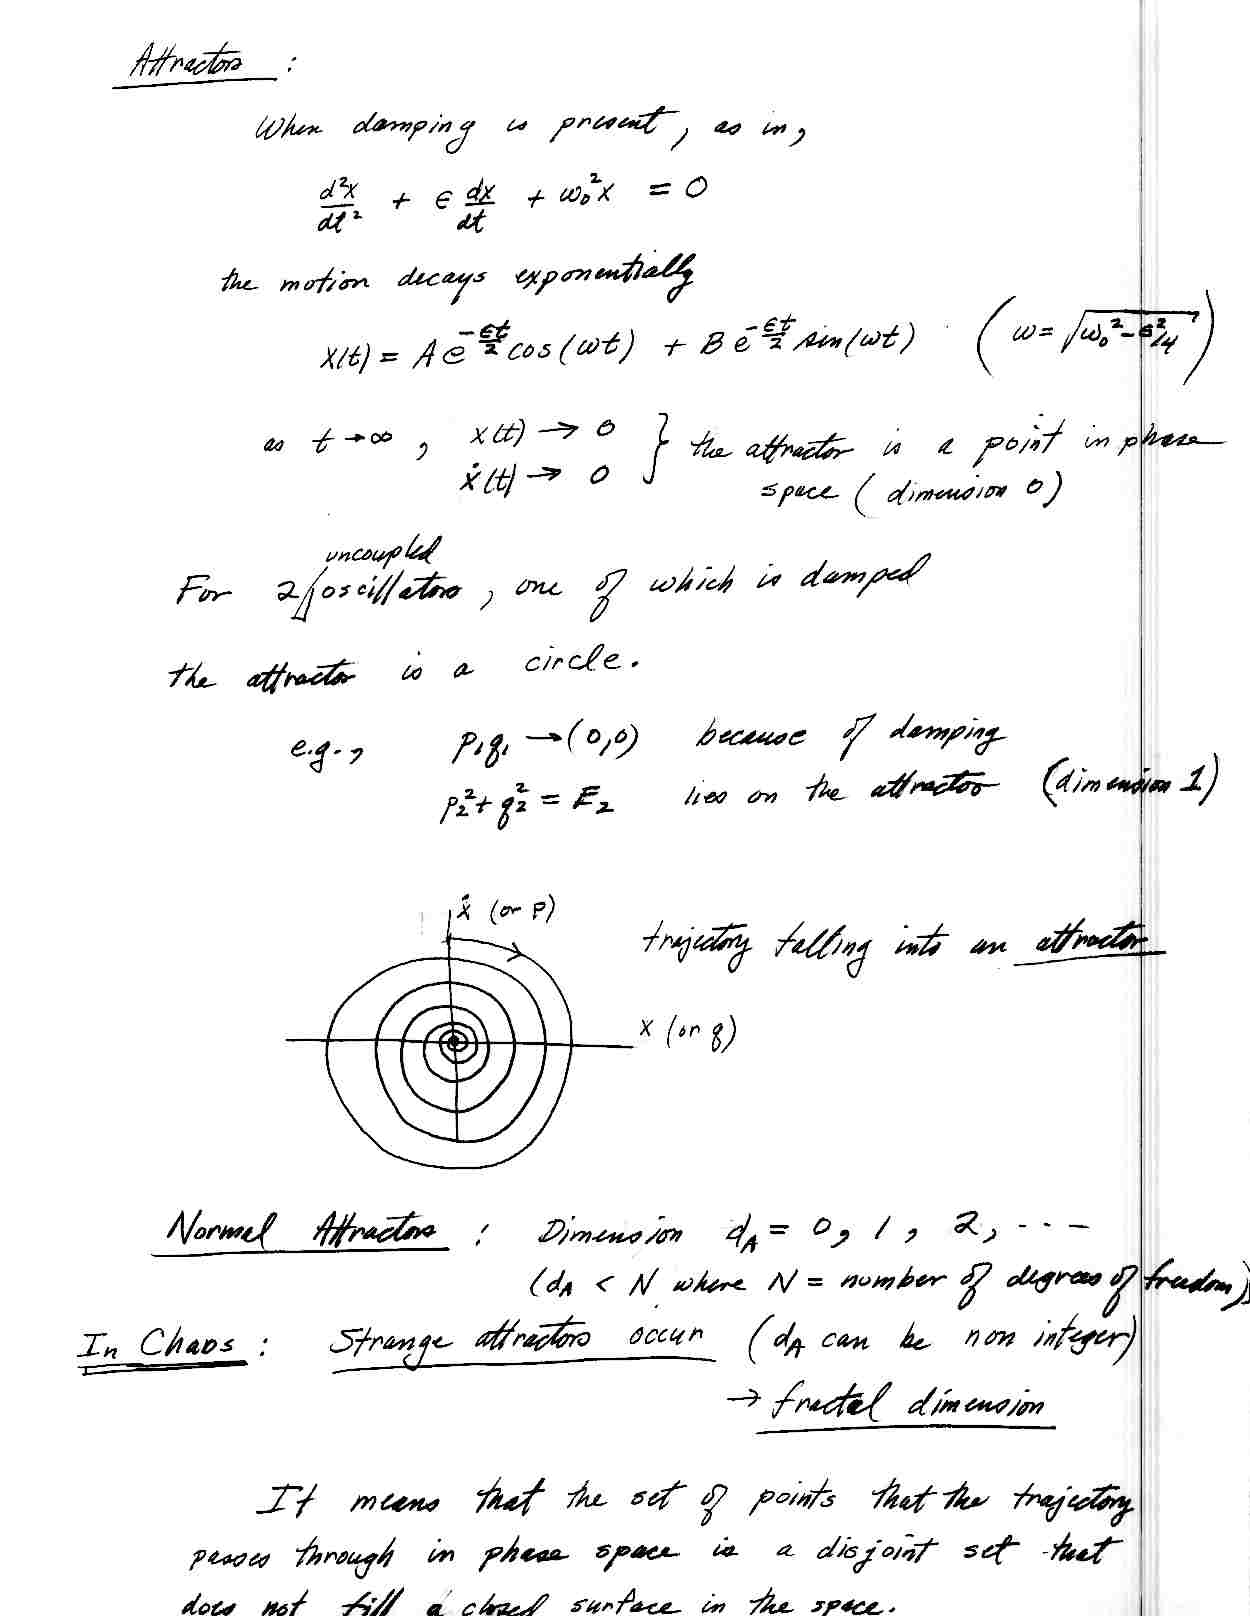 Attractors :
When damping is present, as in,
d²x/dt² + ε dx/dt + ω₀²x = 0
the motion decays exponentially
x(t) = A e^(-εt/2) cos(ωt) + B e^(-εt/2) sin(ωt) (ω = √(ω₀² - ε²/4))
as t → ∞ , x(t) → 0 } the attractor is a point in phase
ẋ(t) → 0 space (dimension 0)
uncoupled
For 2 oscillators, one of which is damped
the attractor is a circle.
e.g., p₁q₁ → (0,0) because of damping
p₂² + q₂² = E₂ lies on the attractor (dimension 1)
ẋ (or p)
trajectory falling into an attractor
x (or q)
Normal Attractors : Dimension d_A = 0, 1, 2, ---
(d_A < N where N = number of degrees of freedom)
In Chaos : Strange attractors occur (d_A can be non integer)
→ fractal dimension
It means that the set of points that the trajectory
passes through in phase space is a disjoint set that
does not fill a closed surface in the space.